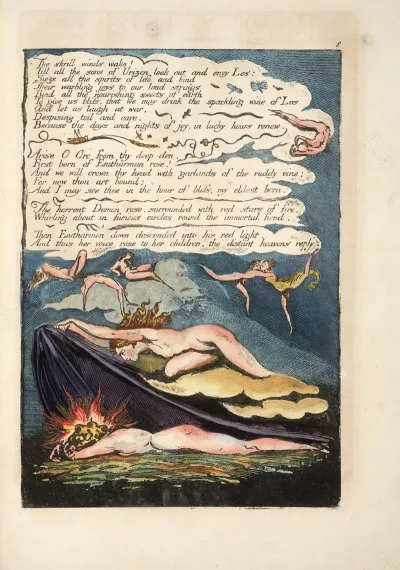 The shrill winds wake!
Till all the sons of Urizen look out and envy Los:
Sieze all the spirits of life and bind
Their warbling joys to our loud strings
Bind all the nourishing sweets of earth
To give us bliss, that we may drink the sparkling wine of Los
And let us laugh at war,
Despising toil and care,
Because the days and nights of joy, in lucky hours renew.
Arise O Orc from thy deep den,
First born of Enitharmon rise!
And we will crown thy head with garlands of the ruddy vine;
For now thou art bound;
And I may see thee in the hour of bliss, my eldest born.
The horrent Demon rose, surrounded with red stars of fire,
Whirling about in furious circles round the immortal fiend.
Then Enitharmon down descended into his red light,
And thus her voice rose to her children, the distant heavens reply.